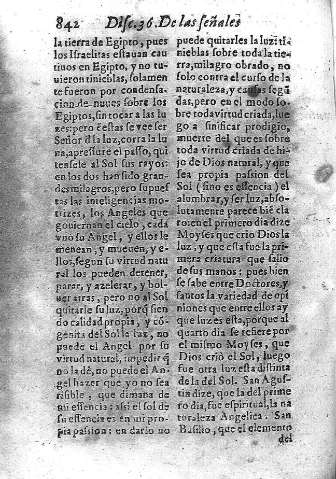 842 Disc. 36. De las señales
la tierra de Egipto, pues
los Israelitas estauan cau
tiuos en Egypto, y no tu-
uieron tinieblas, solamen
te fueron por condensa-
cion de nuues sobre los
Egiptos, sin tocar a las lu
zes: pero estas se vee ser
Señor d la luz, corta la lu
na, apresure el passo, qui
tensele al Sol sus rayos:
en los dos han sido gran-
des milagros, pero supues
tas las inteligencias mo-
trizes, los Angeles que
gouiernan el cielo, cada
vno su Angel, y ellos le
menean, y mueuen, y e-
llos, segun su virtud natu
ral los pueden detener,
parar, y azelerar, y bol-
uer atras, pero no al Sol
quitarle su luz, porq̃ sien
do calidad propia, y có-
genita del Sol la luz, no
puede el Angel por su
virtud natural, impedir q̃
no la dé, no puede el An-
gel hazer que yo no sea
risible, que dimana de
mi essencia: assi el sol de
su essencia es en mi pro-
pia passion: en darlo no
puede quitarles la luz: ti
nieblas sobre toda la tie-
rra, milagro obrado, no
solo contra el curso de la
naturaleza, y causas segũ
das, pero en el modo so-
bre toda virtud criada, lue
go a sinificar prodigio,
muerte del que es sobre
toda virtud criada de hi-
jo de Dios natural, y que
sea propia passion del
Sol (sino es essencia) el
alumbrar, y ser luz, abso-
lutamente parece bié cla
ro: en el primero dia dize
Moyses que crio Dios la
luz, y que esta fue la pri-
mera criatura que salio
de sus manos: pues bien
se sabe entre Doctores, y
santos la variedad de opi
niones que entre ellos ay
que luz es esta, porque al
quarto dia se refiere por
el mismo Moyses, que
Dios crió el Sol, luego
fue otra luz esta distinta
de la del Sol. San Agus-
tin dize, que la del prime
ro dia, fue espiritual, la na
turaleza Angelica. San
Basilio, que el elemento
del